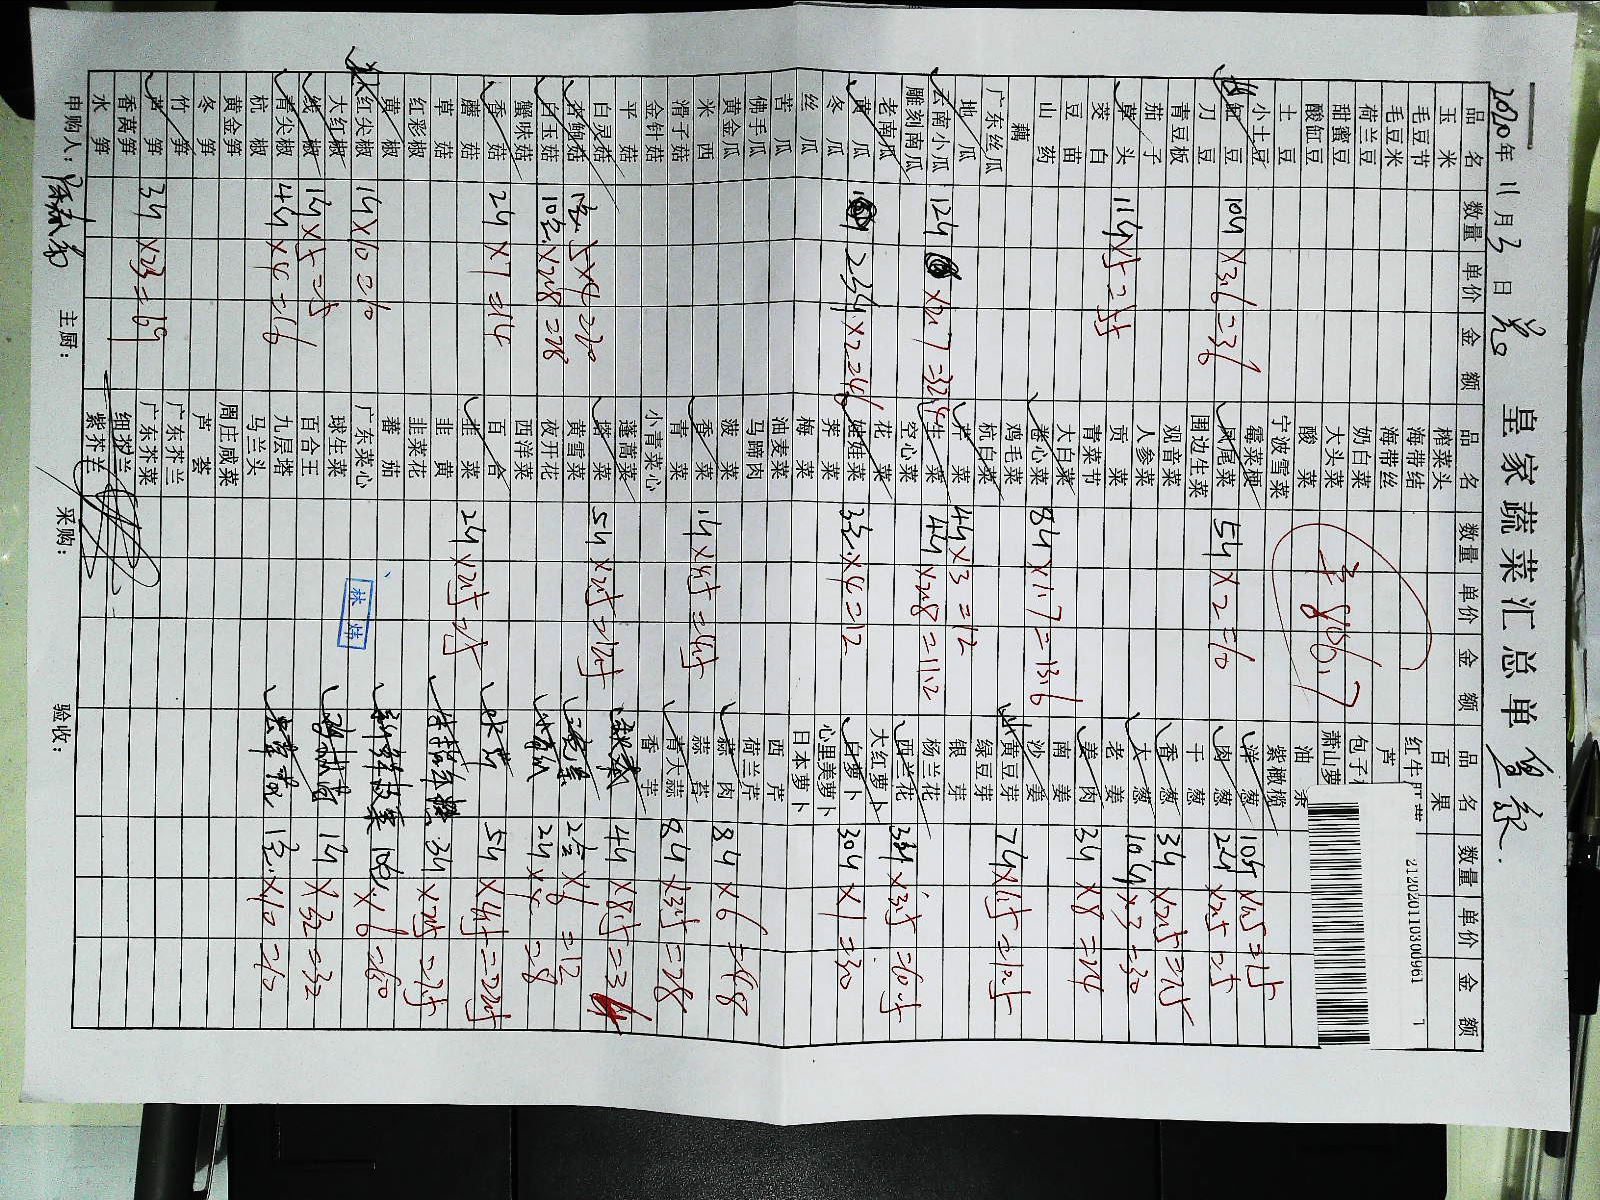 皇家蔬菜汇总单
2020年 11月 3日
品名 数量 单价 金额
玉米
毛豆节
毛豆米
荷兰豆
甜蜜豆
酸缸豆
土豆
小土豆
缸豆 10斤×3.6=36
刀豆
青豆板
茄子
草头 11斤×5=55
茭白
豆苗
山药
藕
广东丝瓜
地瓜
云南小瓜 12斤×2.7=32.4
雕刻南瓜
老南瓜
黄瓜 23斤×2=46
冬瓜
丝瓜
苦瓜
佛手瓜
黄金瓜
米西
滑子菇
金针菇
平菇
白灵菇
杏鲍菇
白玉菇 10包×2.8=28
蟹味菇
香菇 2斤×7=14
蘑菇
草菇
红彩椒
黄椒
红尖椒 1斤×10=10
大红椒
线椒 1斤×5=5
青尖椒 4斤×4=16
杭椒
黄金笋
冬笋
竹笋
芦笋 3斤×23=69
香莴笋
水笋
品名 数量 单价 金额
榨菜头
海带结
海带丝
奶白菜
大头菜
酸菜
宁波雪菜
霉菜梗
凤尾菜 5斤×2=10
围边生菜
观音菜
人参菜
贡菜
青菜节
大白菜
卷心菜 8斤×1.7=13.6
鸡毛菜
杭白菜
芹菜 4斤×3=12
生菜 4斤×2.8=11.2
空心菜
花菜
娃娃菜 3包×4=12
荠菜
梅菜
油麦菜
马蹄肉
菠菜
香菜 1斤×4.5=4.5
青菜
小青菜心
蓬蒿菜
塔菜 5斤×2.5=12.5
黄雪菜
夜开花
西洋菜
百合
韭菜 2斤×2.5=5
韭黄
韭菜花
蕃茄
广东菜心
球生菜
百合王
九层塔
马兰头
周庄咸菜
芦荟
广东芥兰
广东芥菜
细芥兰
紫芥兰
品名 数量 单价 金额
百果
红牛
芦
包子
萧山萝
油条
紫橄榄
洋葱 10斤×1.5=15
肉葱 2斤×2.5=5
干葱
香葱 3斤×2.5=7.5
大葱 10斤×3=30
老姜
姜肉 3斤×8=24
沙姜
南姜
黄豆芽 7斤×1.5=10.5
绿豆芽
银芽
杨兰花
西兰花
大红萝卜
白萝卜 30斤×1=30
心里美萝卜
日本萝卜
西芹
荷兰芹
蒜肉 8斤×6=48
蒜苔
青大蒜 8斤×3.5=28
香芋
4斤×8.5=34
2包×6=12
2斤×4=8
5斤×4.5=22.5
3斤×2.5=7.5
新鲜 10包×6=60
1斤×32=32
1包×10=10
¥ 816.7
2120201103009611
林炜
申购人： 主厨： 采购： 验收：